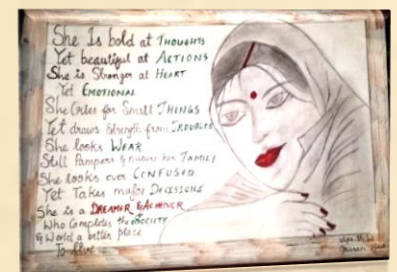 She Is bold at THOUGHTS
Yet beautiful at ACTIONS
She is Stronger at HEART
Yet EMOTIONAL
She Cries for Small THINGS
Yet draws Strength from TROUBLES
She looks WEAK
Still Pampers & Nurture her FAMILY
She looks ever CONFUSED
Yet Takes major DECISIONS
She is a DREAMER & ACHIEVER
Who Completes the SOCIETY
& World a better place
To live